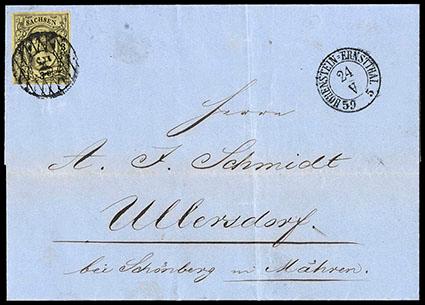 SACHSEN
HOHENSTEIN-ERNSTTHAL
24
V
59
5
Herrn
A. F. Schmidt
Ullersdorf.
bei Schönberg in Mähren.